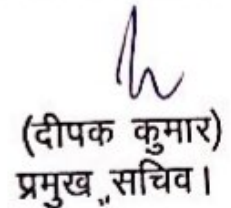 (दीपक कुमार)
प्रमुख सचिव।